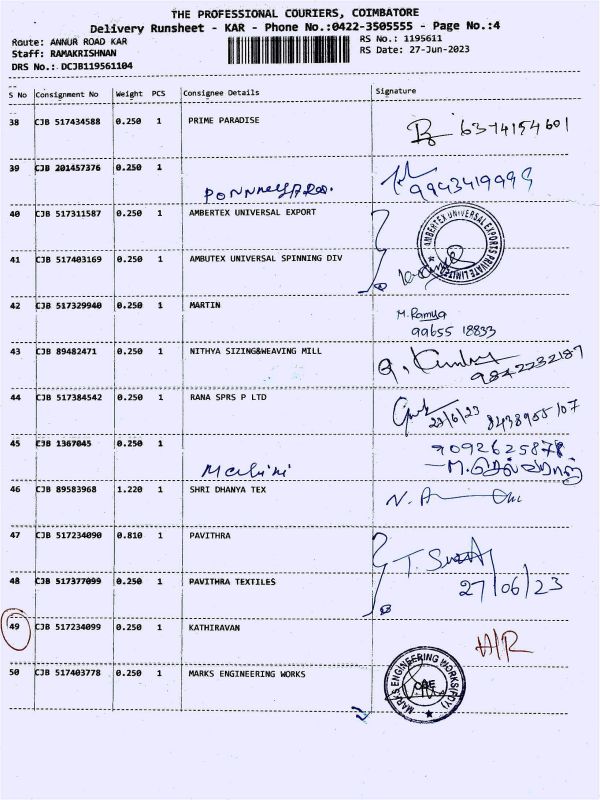 THE PROFESSIONAL COURIERS, COIMBATORE
Delivery Runsheet - KAR - Phone No.:0422-3505555 - Page No.:4
Route: ANNUR ROAD KAR RS No.: 1195611
Staff: RAMAKRISHNAN RS Date: 27-Jun-2023
DRS No.: DCJB119561104
S No Consignment No Weight PCS Consignee Details Signature
38 CJB 517434588 0.250 1 PRIME PARADISE 6374154601
39 CJB 201457376 0.250 1 9943419999
40 CJB 517311587 0.250 1 AMBERTEX UNIVERSAL EXPORT
AMBERTEX UNIVERSAL EXPORTS PRIVATE LIMITED
41 CJB 517403169 0.250 1 AMBUTEX UNIVERSAL SPINNING DIV
42 CJB 517329940 0.250 1 MARTIN M. Ramya
99655 18833
43 CJB 89482471 0.250 1 NITHYA SIZING&WEAVING MILL 9842232187
44 CJB 517384542 0.250 1 RANA SPRS P LTD 27/6/23
45 CJB 1367045 0.250 1 9092625878
46 CJB 89583968 1.220 1 SHRI DHANYA TEX
47 CJB 517234090 0.810 1 PAVITHRA
48 CJB 517377099 0.250 1 PAVITHRA TEXTILES 27/06/23
49 CJB 517234099 0.250 1 KATHIRAVAN
50 CJB 517403778 0.250 1 MARKS ENGINEERING WORKS